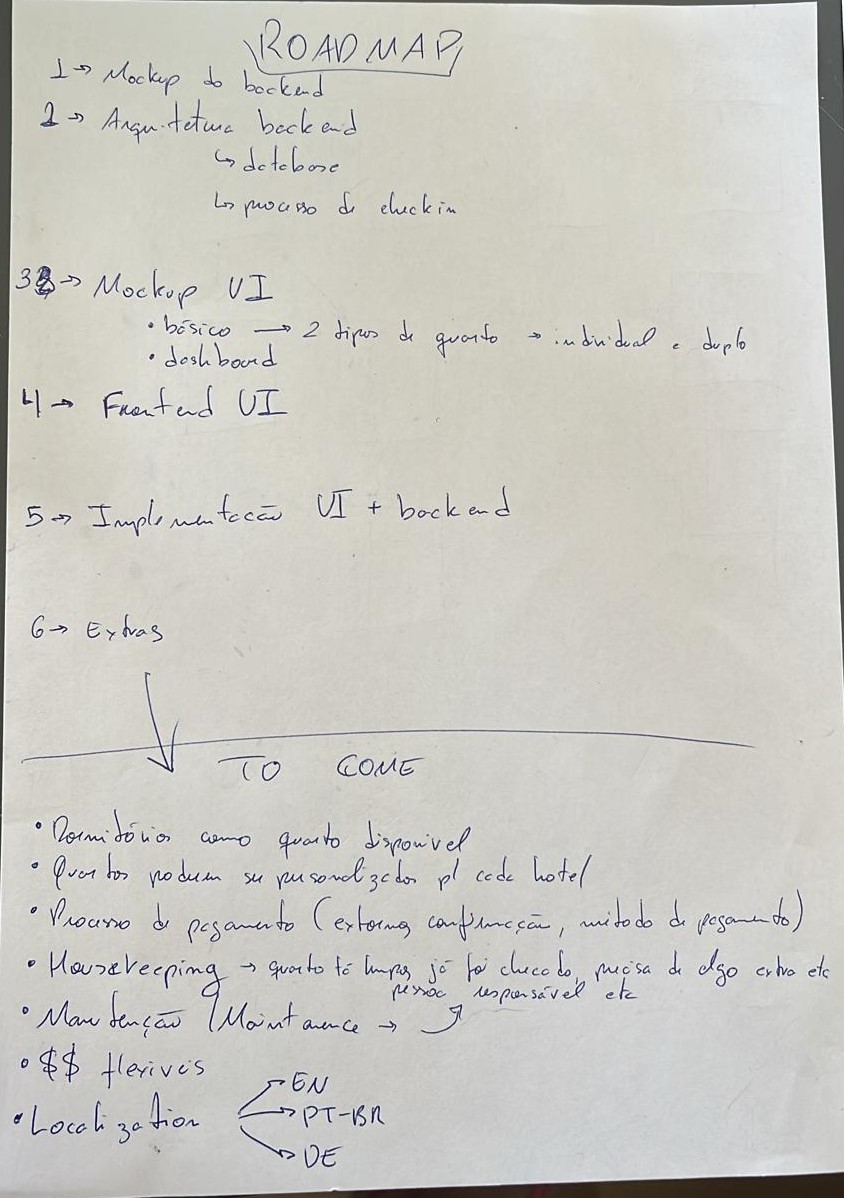 ROADMAP
1 → Mockup do backend
2 → Arquitetura backend
↳ database
↳ processo de checkin
3 → Mockup UI
• básico → 2 tipos de quarto → individual e duplo
• dashboard
4 → Frontend UI
5 → Implementacão UI + backend
6 → Extras
TO COME
• Dormitórios como quarto disponivel
• Quartos podem ser personalizados p/ cada hotel
• Processo de pagamento (externa, confirmação, método de pagamento)
• Housekeeping → quarto tá limpo, já foi checado, precisa de algo extra etc
pessoa responsável etc
• Manutenção / Maintanence →
• $$ flexiveis
• Localization → EN
→ PT-BR
→ DE